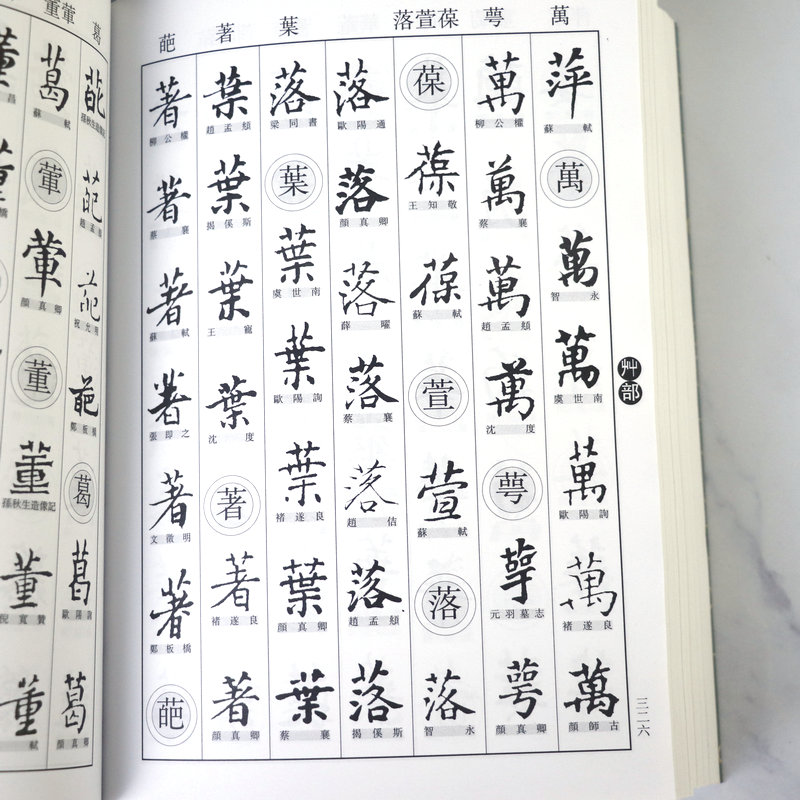 萬
萼
葆萱落
葉
著
葩
艸部
三二六
萍
蘇軾
萬
萬
智永
萬
虞世南
萬
歐陽詢
萬
褚遂良
萬
顏師古
萬
柳公權
萬
蔡襄
萬
趙孟頫
萬
沈度
萼
萼
元羽墓志
萼
顏真卿
葆
葆
王知敬
葆
蘇軾
萱
萱
蘇軾
落
落
智永
落
歐陽通
落
顏真卿
落
薛曜
落
蔡襄
落
趙佶
落
趙孟頫
落
揭傒斯
落
梁同書
葉
葉
虞世南
葉
歐陽詢
葉
褚遂良
葉
顏真卿
葉
蔡襄
葉
趙孟頫
葉
揭傒斯
葉
王寵
葉
沈度
著
著
褚遂良
著
顏真卿
著
柳公權
著
蔡襄
著
蘇軾
著
張即之
著
文徵明
著
鄭板橋
葩
葛
葷
董
葩
孫秋生造像記
葩
趙孟頫
葩
祝允明
葩
鄭板橋
葛
葛
歐陽詢
葛
顏真卿
葛
蘇軾
葷
葷
顏真卿
董
董
孫秋生造像記
董
倪寬贊
董
軾